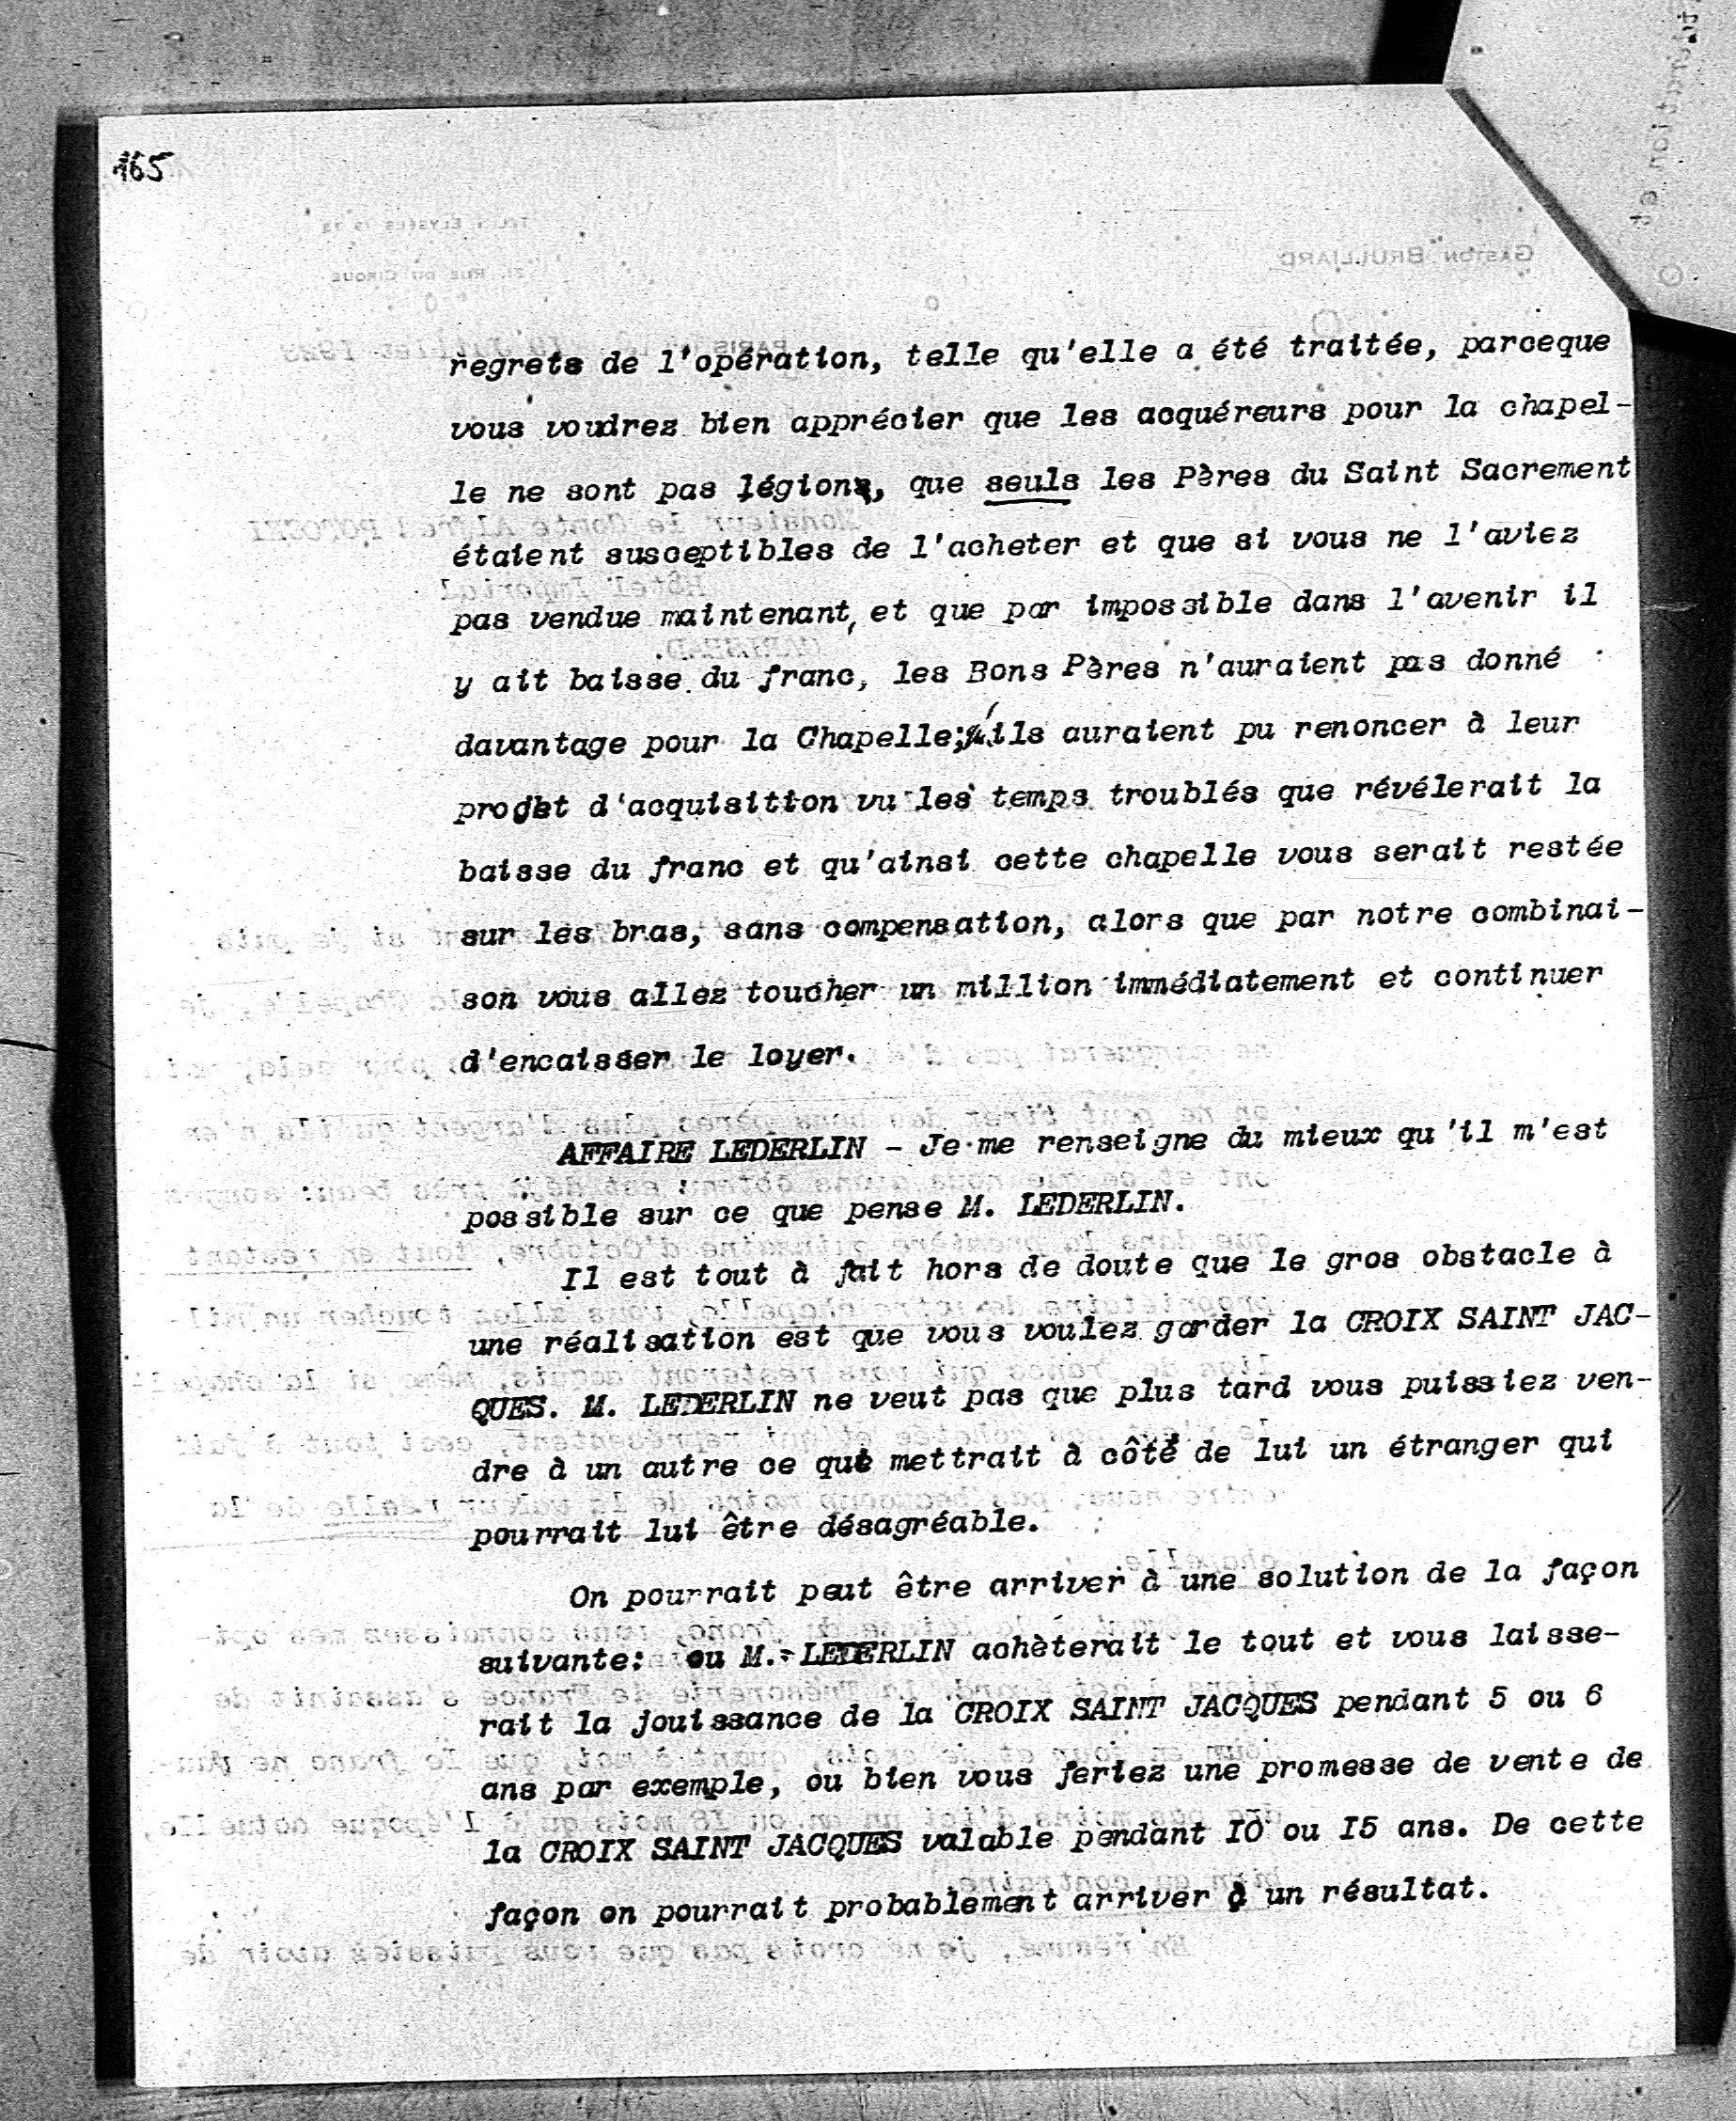 165
regrets de l'opération, telle qu'elle a été traitée, parceque
vous voudrez bien apprécier que les acquéreurs pour la chapel-
le ne sont pas légion, que seuls les Pères du Saint Sacrement
étaient susceptibles de l'acheter et que si vous ne l'aviez
pas vendue maintenant, et que par impossible dans l'avenir il
y ait baisse du franc, les Bons Pères n'auraient pas donné
davantage pour la Chapelle; ils auraient pu renoncer à leur
projet d'acquisition vu les temps troublés que révélerait la
baisse du franc et qu'ainsi cette chapelle vous serait restée
sur les bras, sans compensation, alors que par notre combinai-
son vous allez toucher un million immédiatement et continuer
d'encaisser le loyer.
AFFAIRE LEDERLIN - Je me renseigne du mieux qu'il m'est
possible sur ce que pense M. LEDERLIN.
Il est tout à fait hors de doute que le gros obstacle à
une réalisation est que vous voulez garder la CROIX SAINT JAC-
QUES. M. LEDERLIN ne veut pas que plus tard vous puissiez ven-
dre à un autre ce qui mettrait à côté de lui un étranger qui
pourrait lui être désagréable.
On pourrait peut être arriver à une solution de la façon
suivante: ou M. LEDERLIN achèterait le tout et vous laisse-
rait la jouissance de la CROIX SAINT JACQUES pendant 5 ou 6
ans par exemple, ou bien vous feriez une promesse de vente de
la CROIX SAINT JACQUES valable pendant I0 ou I5 ans. De cette
façon on pourrait probablement arriver à un résultat.